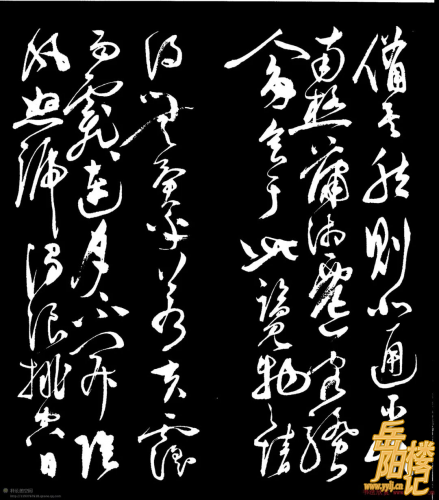 備矣然則北通巫峽
南極瀟湘遷客騷
人多會于此覽物之情
得無異乎若夫霪
雨霏霏連月不開陰
風怒號濁浪排空日
岳阳楼记
www.yylj.cn